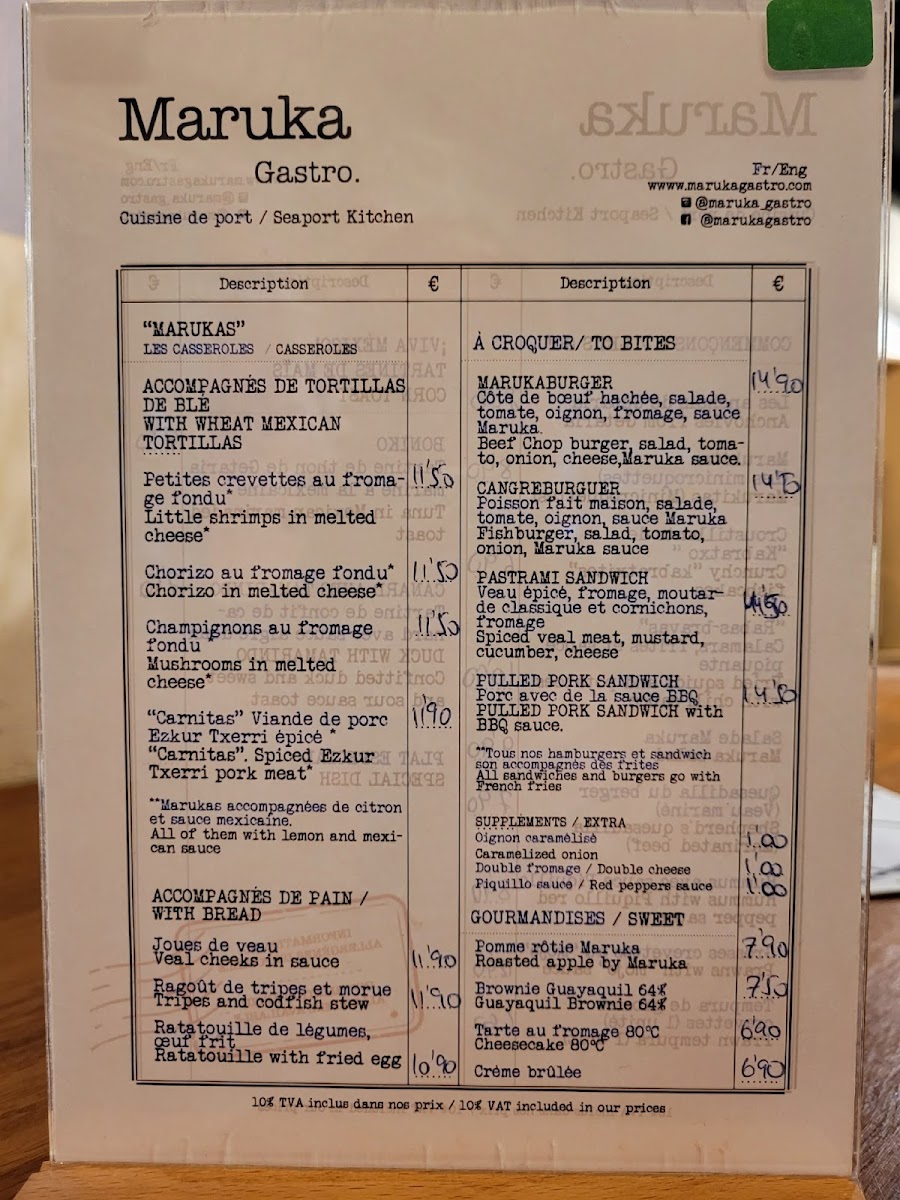 Maruka
Gastro.
Cuisine de port / Seaport Kitchen
Fr/Eng
www.marukagastro.com
@maruka_gastro
@marukagastro
Description €
"MARUKAS"
LES CASSEROLES / CASSEROLES
ACCOMPAGNÉS DE TORTILLAS
DE BLÉ
WITH WHEAT MEXICAN
TORTILLAS
Petites crevettes au froma- 11'50
ge fondu*
Little shrimps in melted
cheese*
Chorizo au fromage fondu* 11'50
Chorizo in melted cheese*
Champignons au fromage 11'50
fondu
Mushrooms in melted
cheese*
"Carnitas" Viande de porc 11'90
Ezkur Txerri épicé *
"Carnitas". Spiced Ezkur
Txerri pork meat*
**Marukas accompagnées de citron
et sauce mexicaine.
All of them with lemon and mexi-
can sauce
ACCOMPAGNÉS DE PAIN /
WITH BREAD
Joues de veau
Veal cheeks in sauce 11.90
Ragoût de tripes et morue
Tripes and codfish stew 11'90
Ratatouille de légumes,
œuf frit
Ratatouille with fried egg 10'90
Description €
À CROQUER/ TO BITES
MARUKABURGER 14'90
Côte de bœuf hachée, salade,
tomate, oignon, fromage, sauce
Maruka.
Beef Chop burger, salad, toma-
to, onion, cheese,Maruka sauce.
CANGREBURGUER 14'50
Poisson fait maison, salade,
tomate, oignon, sauce Maruka
Fishburger, salad, tomato,
onion, Maruka sauce
PASTRAMI SANDWICH
Veau épicé, fromage, moutar-
de classique et cornichons,
fromage
Spiced veal meat, mustard,
cucumber, cheese
PULLED PORK SANDWICH
Porc avec de la sauce BBQ 14'50
PULLED PORK SANDWICH with
BBQ sauce.
**Tous nos hamburgers et sandwich
son accompagnés des frites
All sandwiches and burgers go with
French fries
SUPPLÉMENTS / EXTRA
Oignon caramélisé 1.00
Caramelized onion
Double fromage / Double cheese 1'00
Piquillo sauce / Red peppers sauce 1'00
GOURMANDISES / SWEET
Pomme rôtie Maruka 7'90
Roasted apple by Maruka
Brownie Guayaquil 64% 7'50
Guayaquil Brownie 64%
Tarte au fromage 80°C 6'90
Cheesecake 80°C
Crème brûlée 6'90
10% TVA inclus dans nos prix / 10% VAT included in our prices